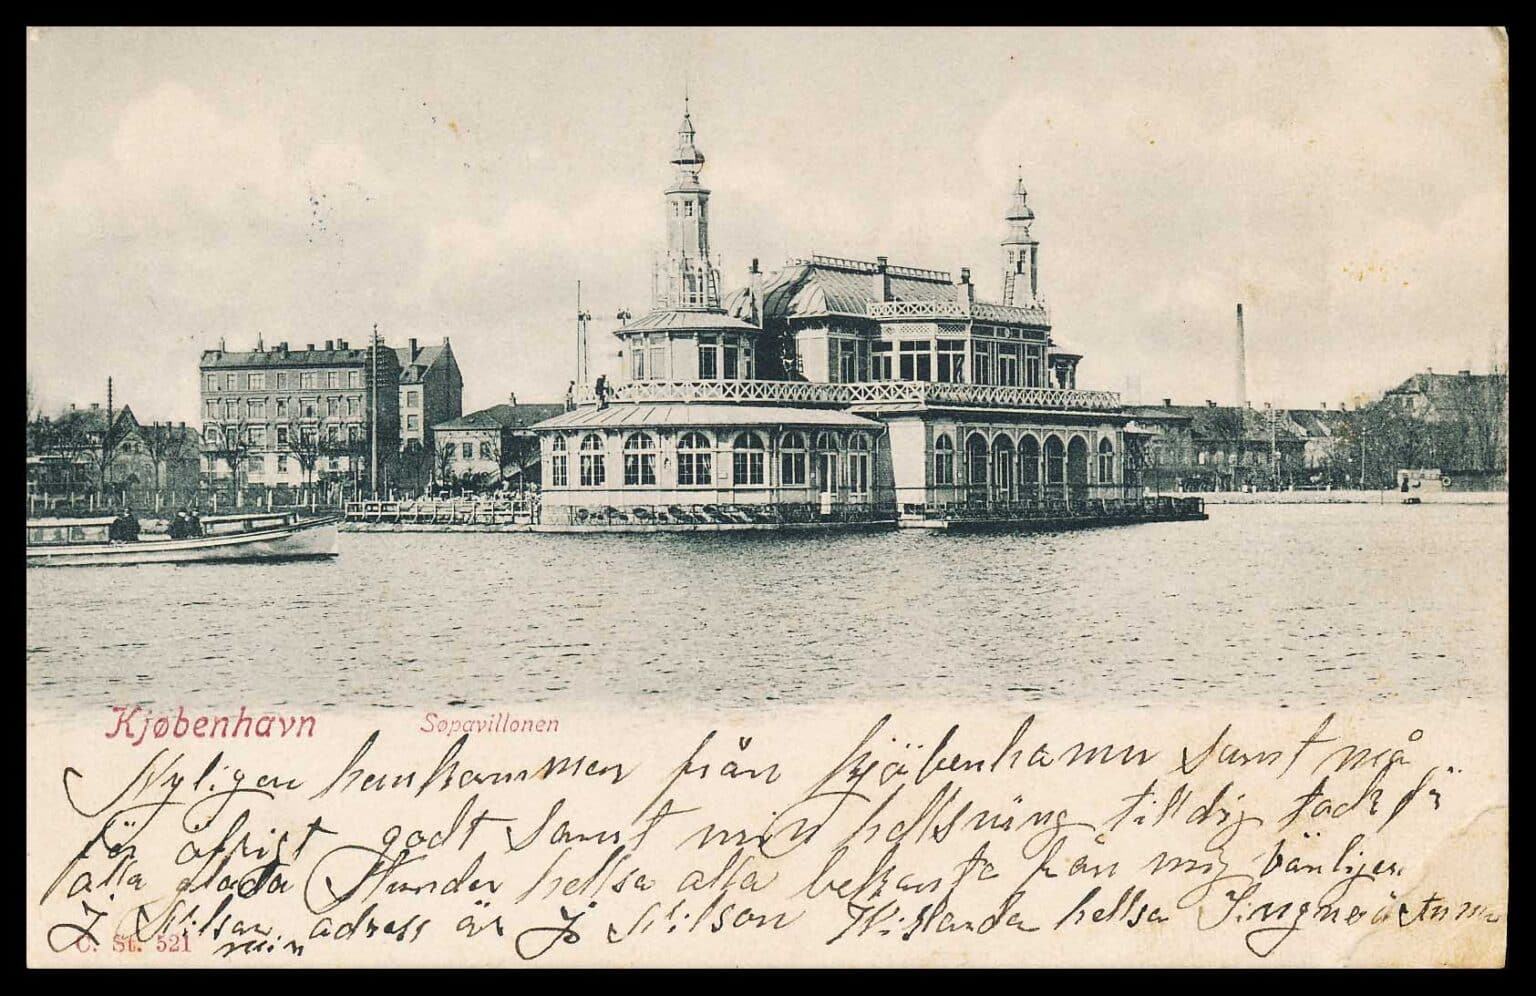 Kjøbenhavn Søpavillonen
Nyligen hemkommen från kjöbenhamn samt må
för öfrigt godt samt min hellsning till dig tack för
alla glada Stunder hellsa alla bekanta från mig vänligen
J Nilson adress är J Nilson Wislanda hellsa
min
C. St. 521